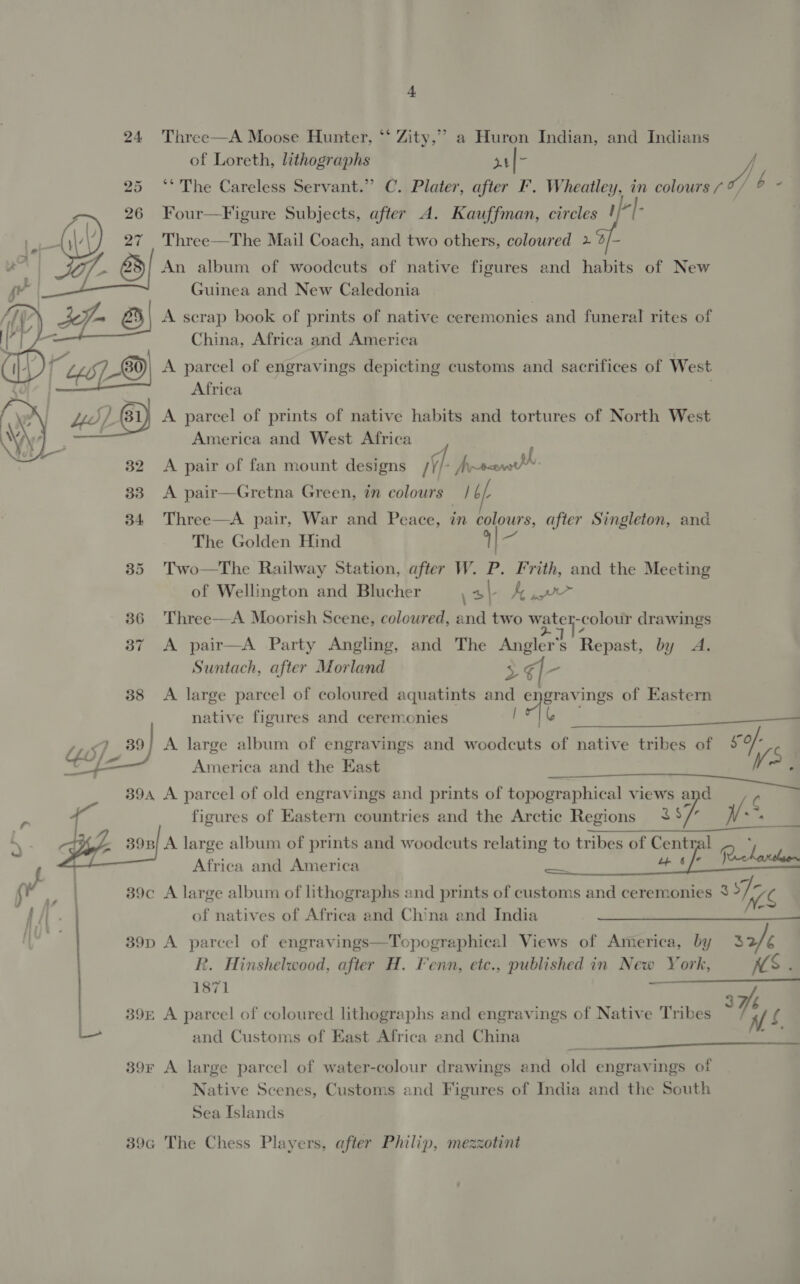 4
24 Three—A Moose Hunter, “Zity,” a Huron Indian, and Indians
of Loreth, lithographs 21/-
25 “The Careless Servant.” C. Plater, after F. Wheatley, in colours
26 Four—Figure Subjects, after A. Kauffman, circles
27 Three—The Mail Coach, and two others, coloured
28 An album of woodcuts of native figures and habits of New
Guinea and New Caledonia
29 A scrap book of prints of native ceremonies and funeral rites of
China, Africa and America
30 A parcel of engravings depicting customs and sacrifices of West
Africa
31 A parcel of prints of native habits and tortures of North West
America and West Africa
32 A pair of fan mount designs
33 A pair—Gretna Green, in colours 16/-
34 Three—A pair, War and Peace, in colours, after Singleton, and
The Golden Hind 9/-
35 Two—The Railway Station, after W. P. Frith, and the Meeting
of Wellington and Blucher
36 Three—A Moorish Scene, coloured, and two water-colour drawings
37 A pair—A Party Angling, and The Angler's Repast, by A.
Suntach, after Morland
38 A large parcel of coloured aquatints and engravings of Eastern
native figures and ceremonies
39 A large album of engravings and woodcuts of native tribes of 50/-
America and the East
39A A parcel of old engravings and prints of topographical views and
figures of Eastern countries and the Arctic Regions 35/-
39B A large album of prints and woodcuts relating to tribes of Central
Africa and America
39C A large album of lithographs and prints of customs and ceremonies
of natives of Africa and China and India
39D A parcel of engravings—Topographical Views of America, by 32/6
R. Hinshelwood, after H. Fenn, etc., published in New York, NS.
1871
39E A parcel of coloured lithographs and engravings of Native Tribes
and Customs of East Africa and China
39F A large parcel of water-colour drawings and old engravings of
Native Scenes, Customs and Figures of India and the South
Sea Islands
39G The Chess Players, after Philip, mezzotint